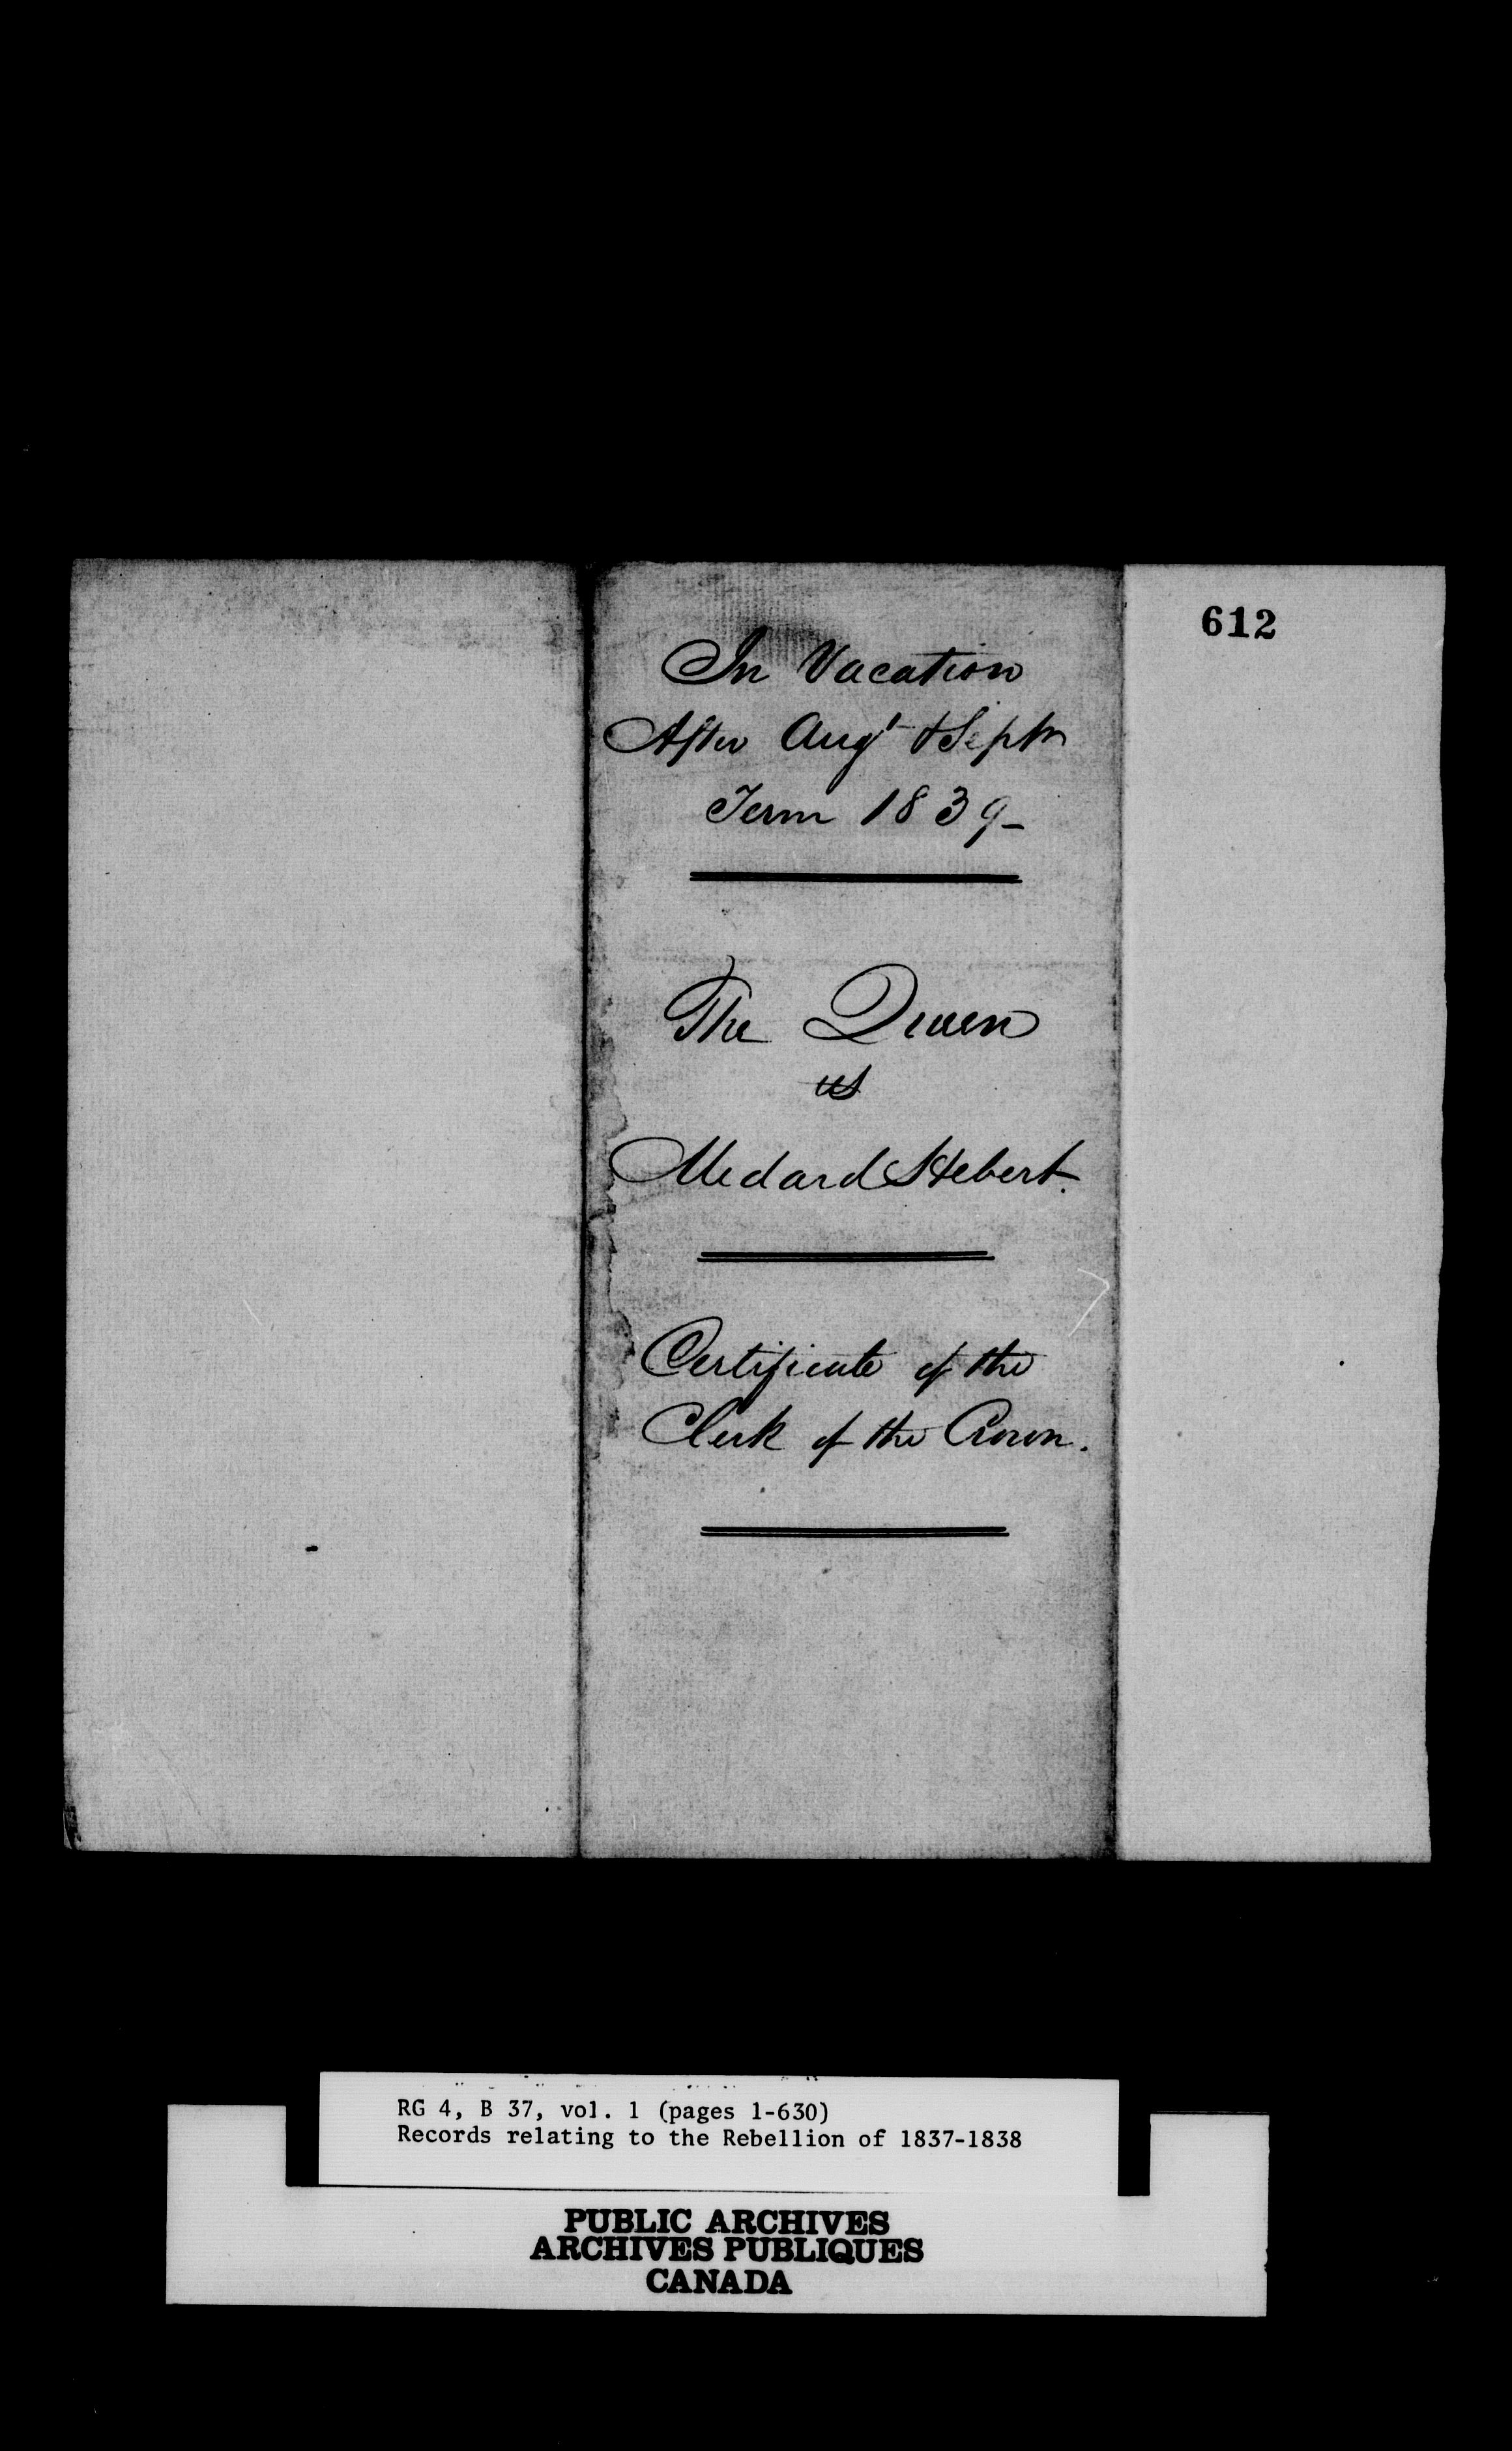 612
In Vacation
After Augt & Septr
Term 1839-
The Queen
vs
Medard Hebert.
Certificate of the
Clerk of the Crown.
RG 4, B 37, vol. 1 (pages 1-630)
Records relating to the Rebellion of 1837-1838
PUBLIC ARCHIVES
ARCHIVES PUBLIQUES
CANADA